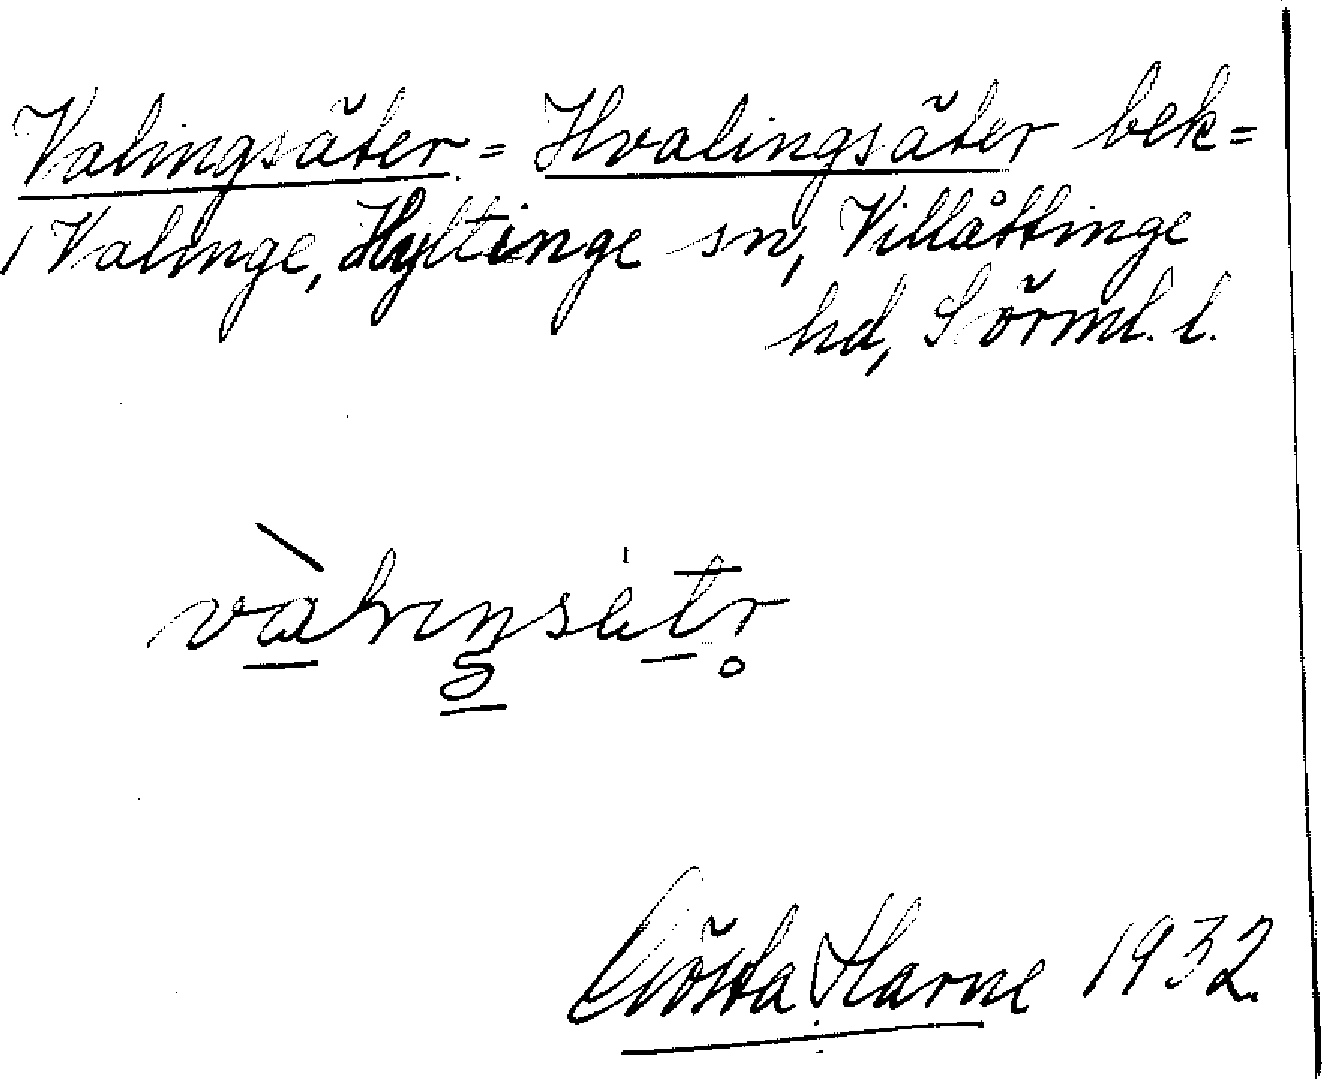 Valingsäter = Hvalingsäter bek=
/Valinge, Hyltinge sn, Villåttinge
hd, Sörml. l.
Gösta Harne 1932.